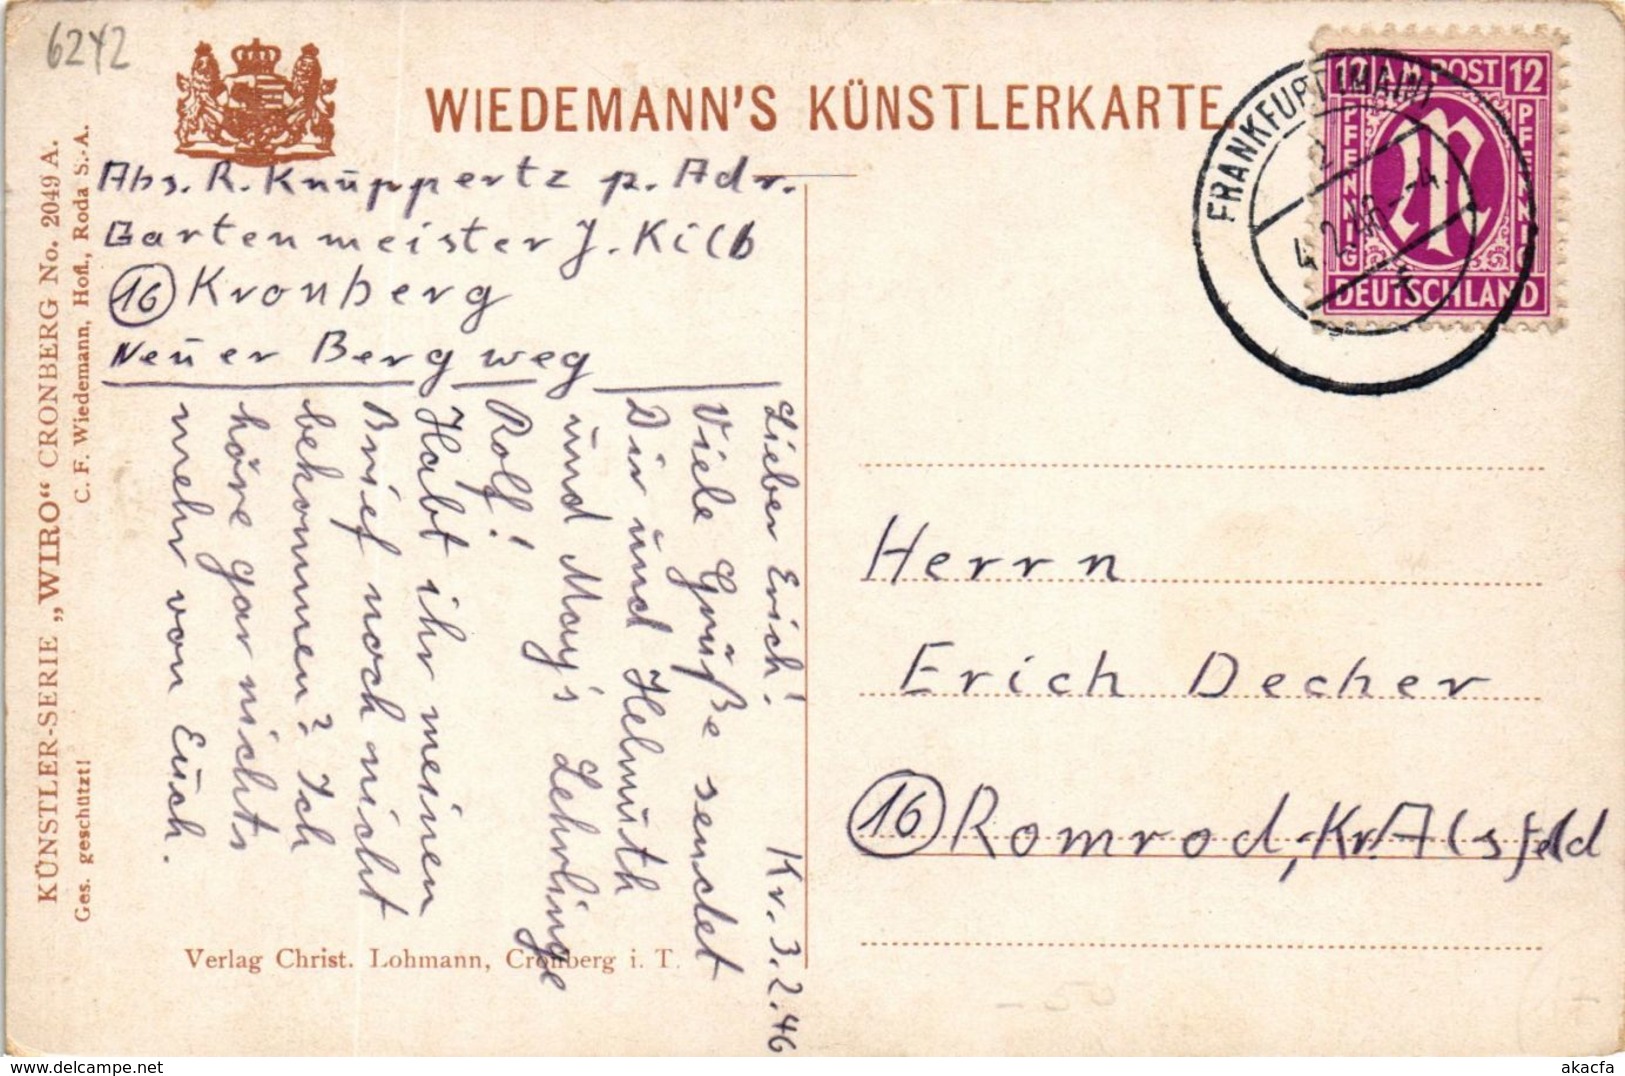 6242
WIEDEMANN'S KÜNSTLERKARTE
KÜNSTLER-SERIE „WIRO“ CRONBERG No. 2049 A.
Ges. geschützt!
C. F. Wiedemann, Hofl., Roda S.-A.
Abs. R. Knüppertz p. Adr.
Gartenmeister J. Kilb
(16) Kronberg
Neuer Bergweg
Kr. 3.2.46
Lieber Erich!
Viele Grüße sendet
Dir und Helmuth
und May's Lehrlinge
Rolf!
Habt ihr meinen
Brief noch nicht
bekommen? Ich
höre gar nichts
mehr von Euch.
Verlag Christ. Lohmann, Cronberg i. T.
12 A.M. POST 12
PFENNIG
PFENNIG
M
DEUTSCHLAND
FRANKFURT (MAIN)
2
4.2.46.-4.
Herrn
Erich Decher
(16) Romrod, Kr. Alsfeld
akacfa